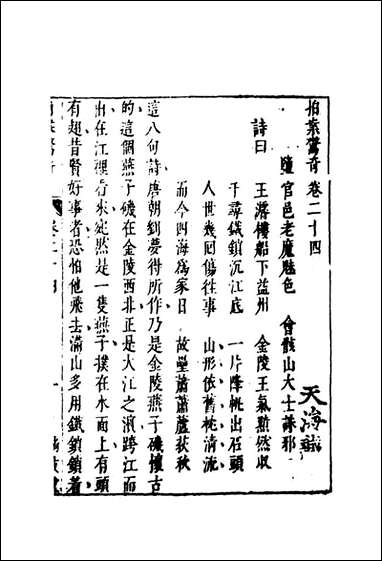 拍案驚奇卷二十四
鹽官邑老魔魅色　會骸山大士誅邪
詩曰
王濬樓船下益州　金陵王氣黯然收
千尋鐵鎖沉江底　一片降帆出石頭
人世幾回傷往事　山形依舊枕清流
而今四海為家日　故壘蕭蕭蘆荻秋
這八句詩唐朝劉夢得所作乃是金陵燕子磯懷古
的這個燕子磯在金陵西北正是大江之濱跨江而
出在江裡看來宛然是一隻燕子撲在水面上有頭
有翅昔賢好事者恐怕他飛去滿山多用鐵鎖鎖着
天海